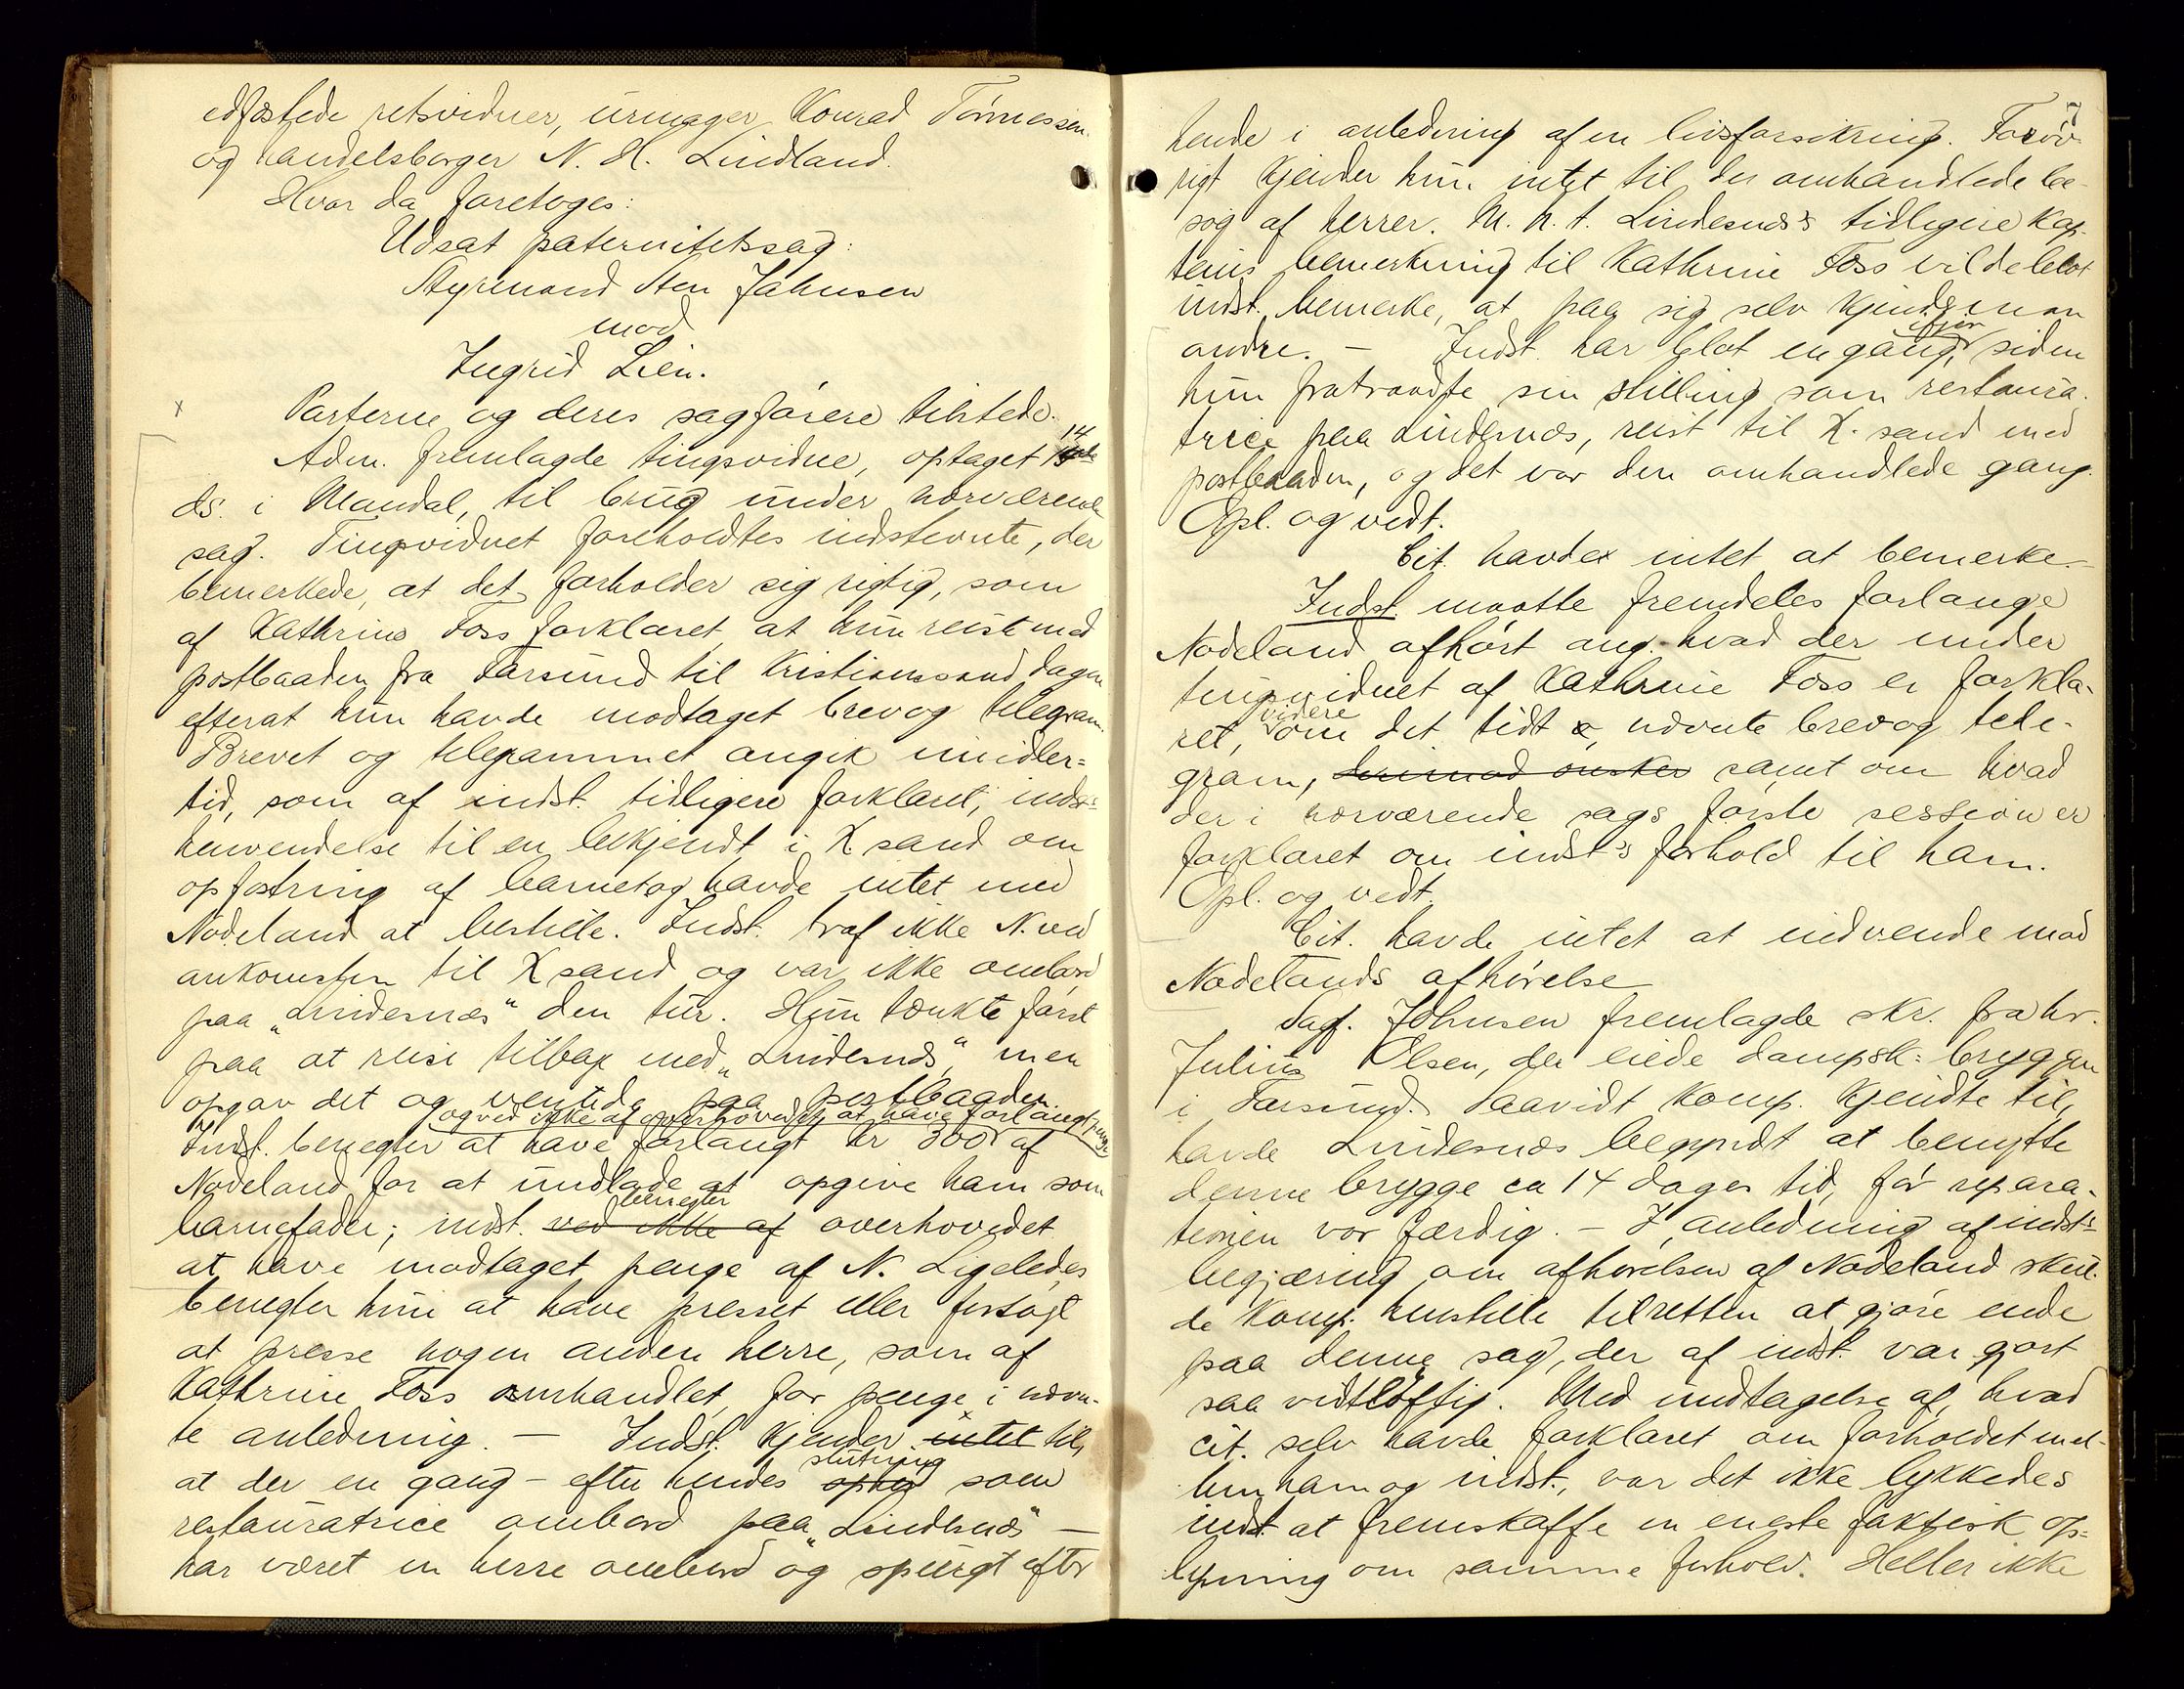 edfæstede retsvidner, urmager Konrad Tønnessen
og handelsborger N. H. Lindland.
Hvor da foretoges:
Udsat paternitetssag:
Styrmand Sten Jahnsen
mod
Ingrid Lien.
x Parterne og deres sagførere tilstede.
Adm. fremlagde tingsvidne, optaget 14
ds. i Mandal, til brug under nærværende
sag. Tingsvidnet foreholdtes indstevnte, der
bemerkede, at det forholder sig rigtig, som
af Kathrine Foss forklaret, at hun reiste med
postbaaden fra Farsund til Kristianssand dagen
efterat hun havde modtaget brev og telegram.
Brevet og telegrammet angik imidler=
tid, som af indst. tidligere forklaret, indst.s
henvendelse til en bekjendt i Xsand om
opfostring af barnet og havde intet med
Nodeland at bestille. Indst. traf ikke N. ved
ankomsten til Xsand og var ikke ombord
paa "Lindesnæs" den tur. Hun tænkte først
paa at reise tilbage med "Lindesnæs", men
opgav det og ventede paa postbaaden.
og ved ikke af overhovedet at have forlangt penge
Indst. benegter at have forlangt kr 300 af
Nodeland for at undlade at opgive ham som
benegter
barnefader; indst. ved ikke af overhovedet
at have modtaget penge af N. Ligeledes
benegter hun at have presset eller forsøgt
at presse nogen anden herre, som af
Kathrine Foss omhandlet, for penge i nævn-
te anledning. – Indst. kjender intet til,
slutning
at der en gang – efter hendes ophør som
restauratrice ombord paa "Lindesnæs" –
har været en herre ombord og spurgt efter
7
hende i anledning af en livsforsikring. Forøv-
rigt kjender hun intet til der omhandlede be-
søg af herrer. M. h. t. Lindesnæs's tidligere kap-
teins bemerkning til Kathrine Foss vilde blot
indst. bemerke, at paa sig selv kjender man
ifjor
andre. – Indst. har blot en gang, siden
hun fratraadte sin stilling som restaura-
trice paa Lindesnæs, reist til X.sand med
postbaaden, og det var den omhandlede gang.
Opl. og vedt.
Cit. havde intet at bemerke.
Indst. maatte fremdeles forlange
Nodeland afhørt ang. hvad der under
tingsvidnet af Kathrine Foss er forkla-
videre
ret, om det tidt nævnte brev og tele-
gram, herimod ønsker samt om hvad
der i nærværende sags første session er
forklaret om indst's forhold til ham.
Opl. og vedt.
Cit. havde intet at indvende mod
Nodelands afhørelse
Sagf. Johnsen fremlagde skr. fra hr.
Julius Olsen, der eiede dampsk: bryggen
i Farsund. Saavidt komp. kjendte til,
havde Lindesnæs begyndt at benytte
denne brygge ca 14 dages tid, før repara-
tionen var færdig. – I anledning af indst's
begjæring om afhørelsen af Nodeland skul-
de komp. henstille til retten at gjøre ende
paa denne sag, der af indst. var gjort
saa vidtløftig. Med undtagelse af, hvad
cit. selv havde forklaret om forholdet mel-
lem ham og indst., var det ikke lykkedes
indst at fremskaffe en eneste faktisk op=
lysning om samme forhold. Heller ikke